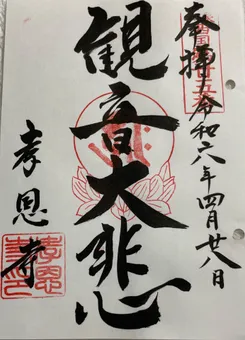 奉拝
令和六年四月廿八日
観音大悲心
孝恩寺